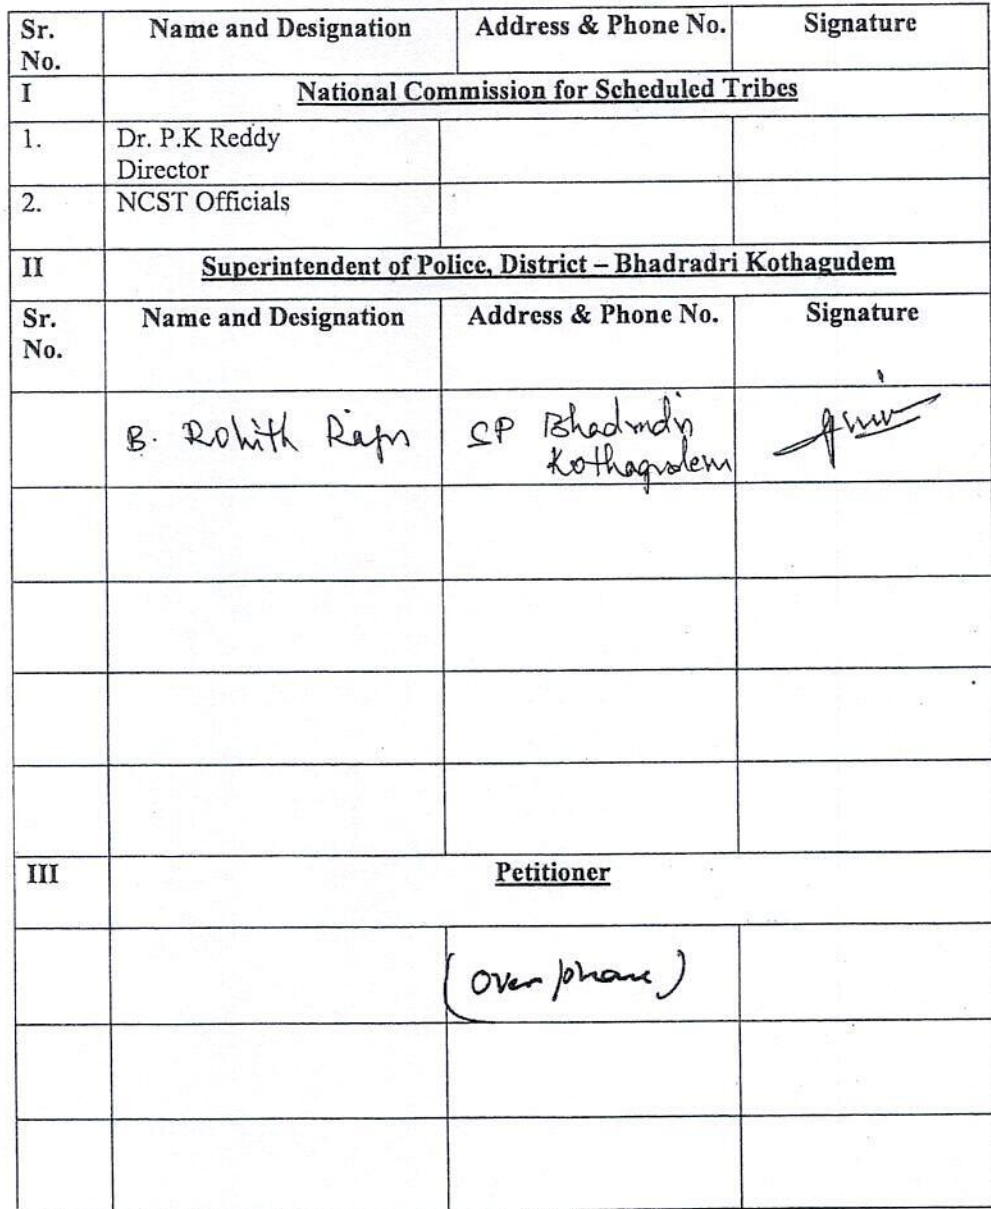 Sr. No. Name and Designation Address & Phone No. Signature
I National Commission for Scheduled Tribes
1. Dr. P.K Reddy
Director
2. NCST Officials
II Superintendent of Police, District – Bhadradri Kothagudem
Sr. No. Name and Designation Address & Phone No. Signature
B. Rohith Raju SP Bhadradri
Kothagudem
III Petitioner
(Over phone)